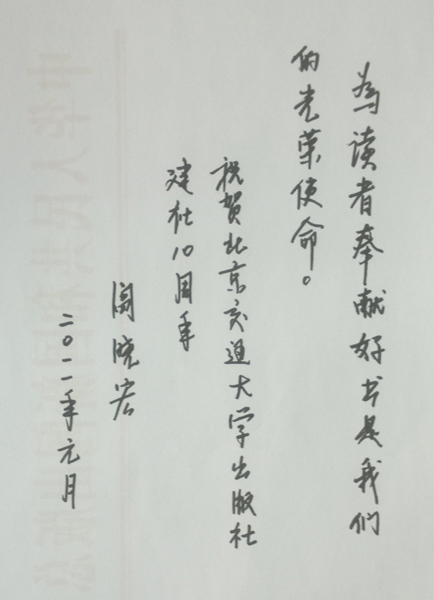 为读者奉献好书是我们
的光荣使命。
祝贺北京交通大学出版社
建社10周年
阎晓宏
二〇一一年元月